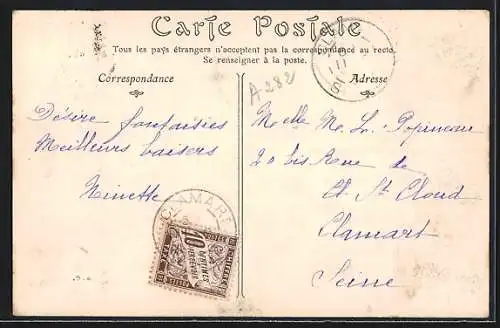 Carte Postale
Tous les pays étrangers n'acceptent pas la correspondance au recto.
Se renseigner à la poste.
Correspondance
Adresse
A 282
Désire fantaisies
Meilleurs baisers
Ninette
Melle M. L. Popineau
20 bis Rue de
St Cloud
Clamart
Seine
CLAMART
10
CENTIMES
A PERCEVOIR